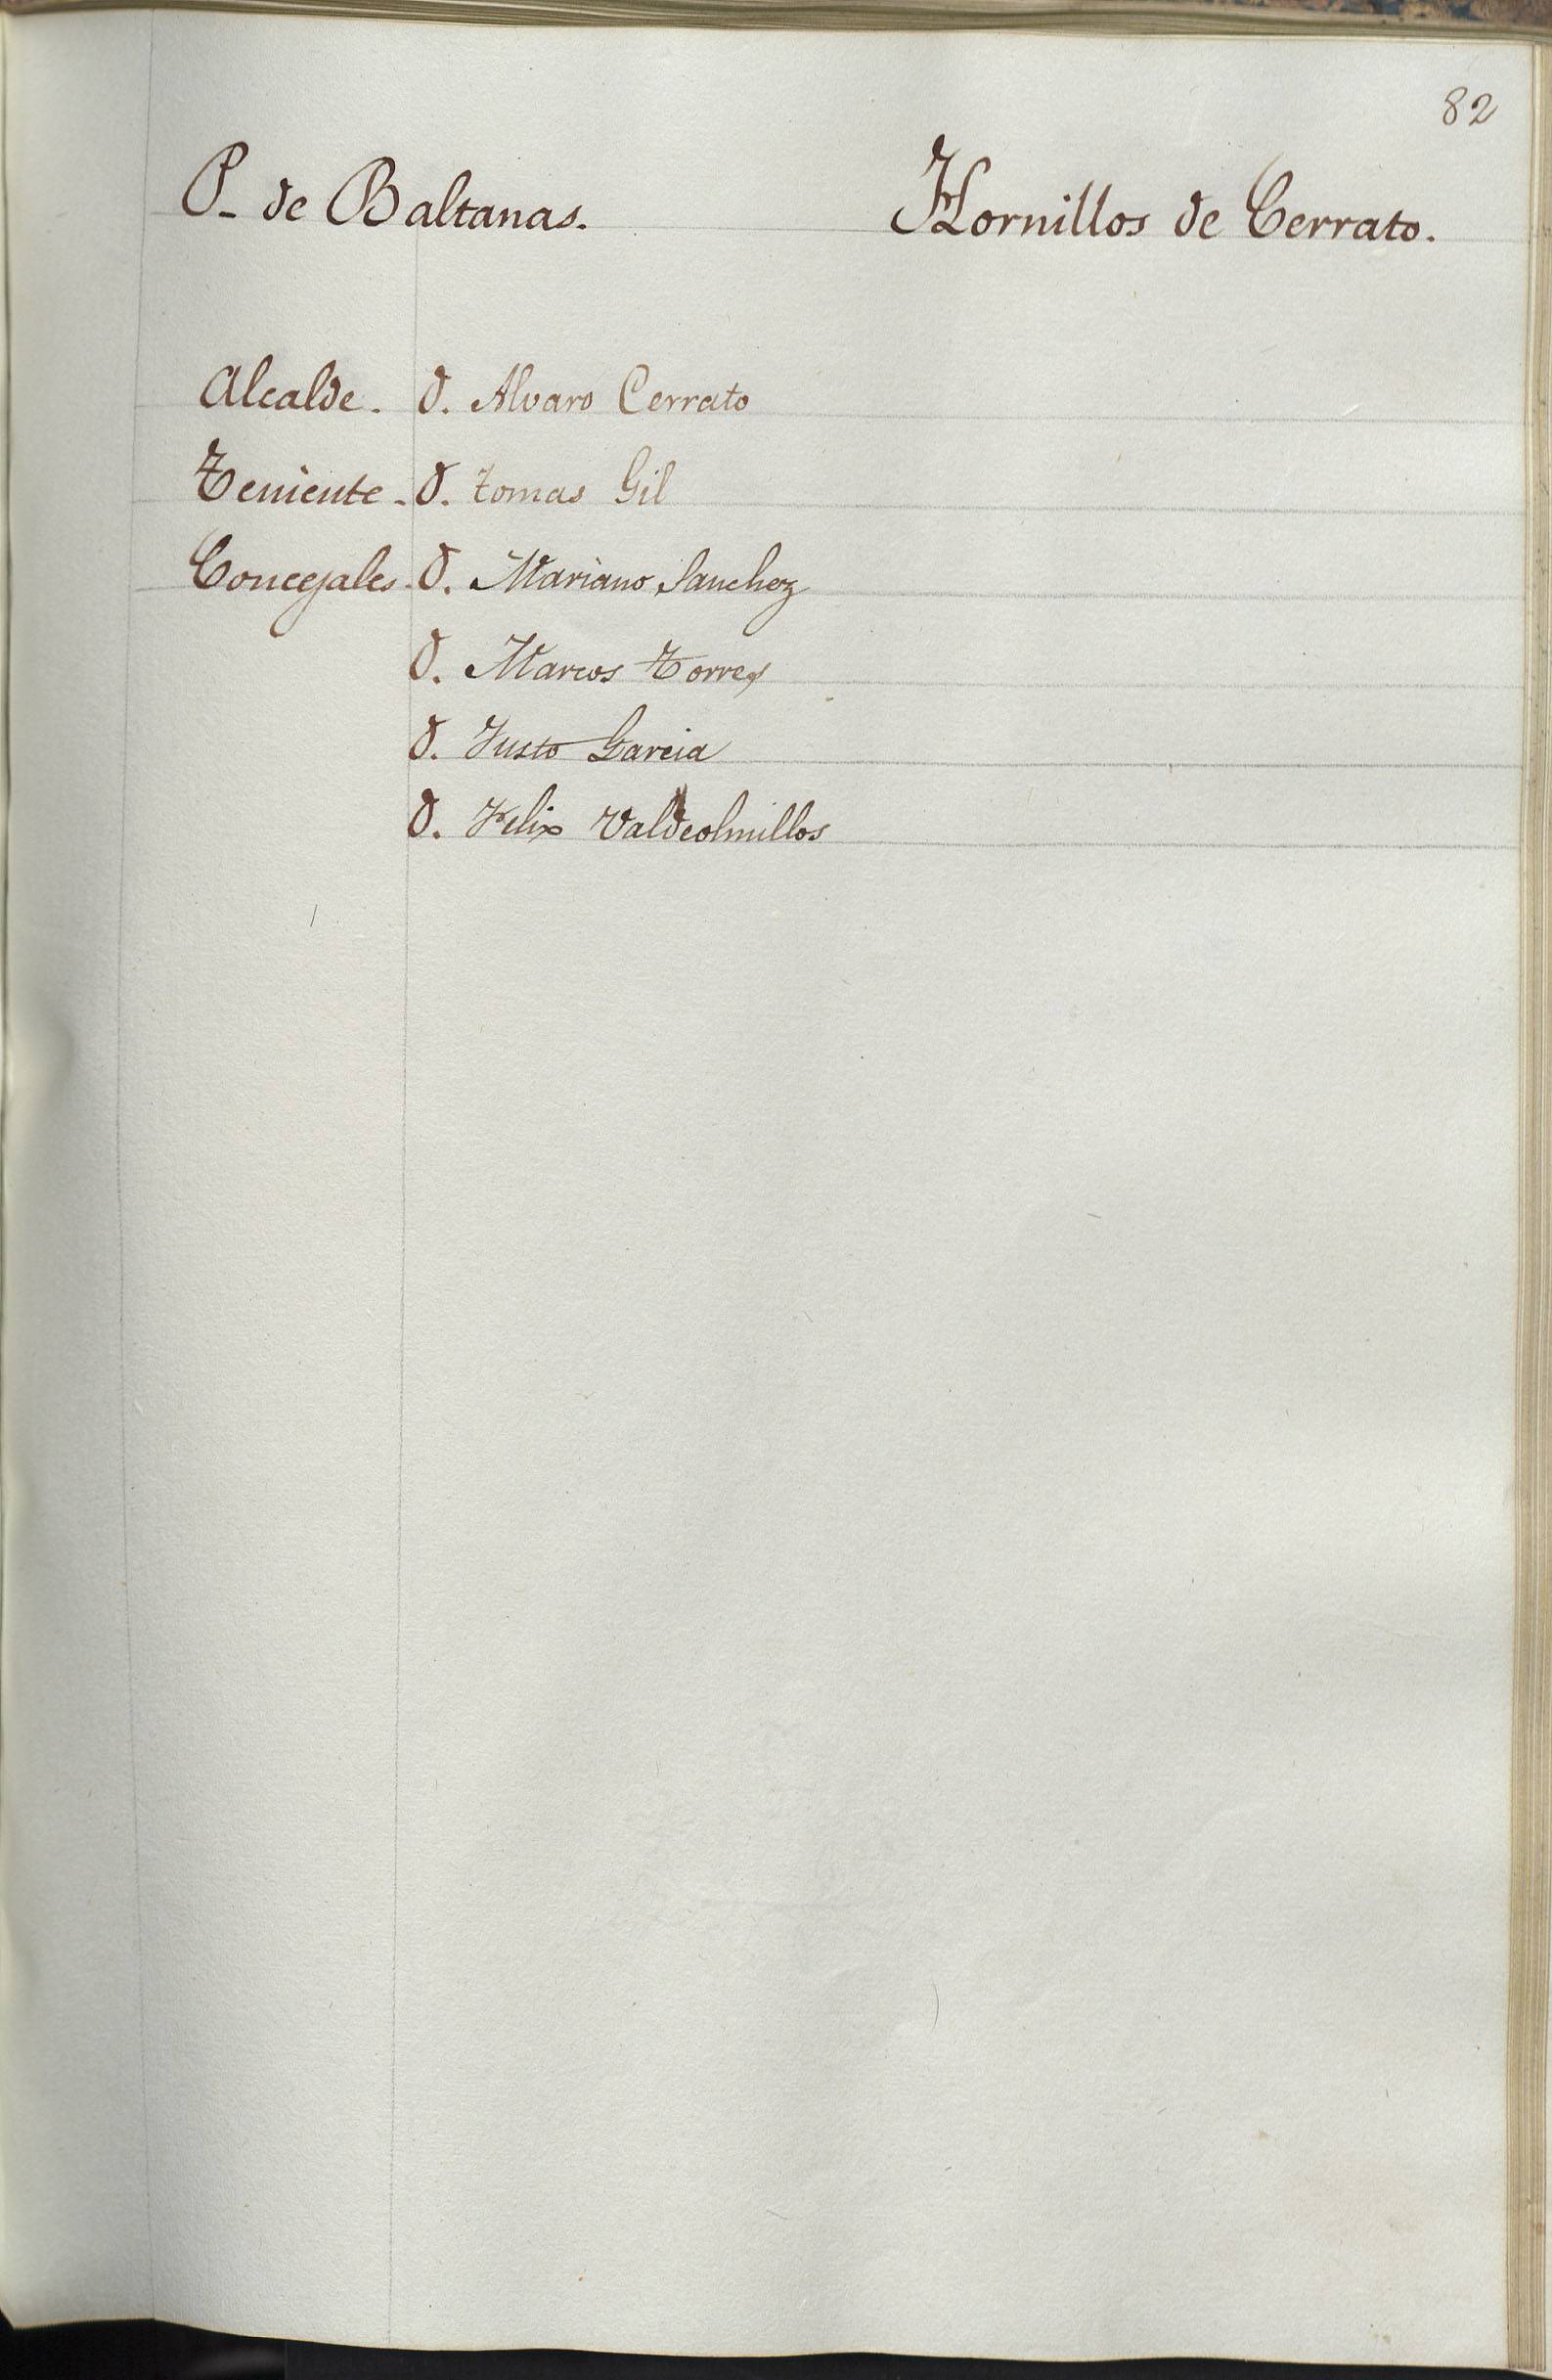 82
P. de Baltanas. Hornillos de Cerrato.
Alcalde. D. Alvaro Cerrato
Teniente. D. Tomas Gil
Concejales. D. Mariano Sanchez
D. Marcos Torres
D. Justo Garcia
D. Felix Valdeolmillos